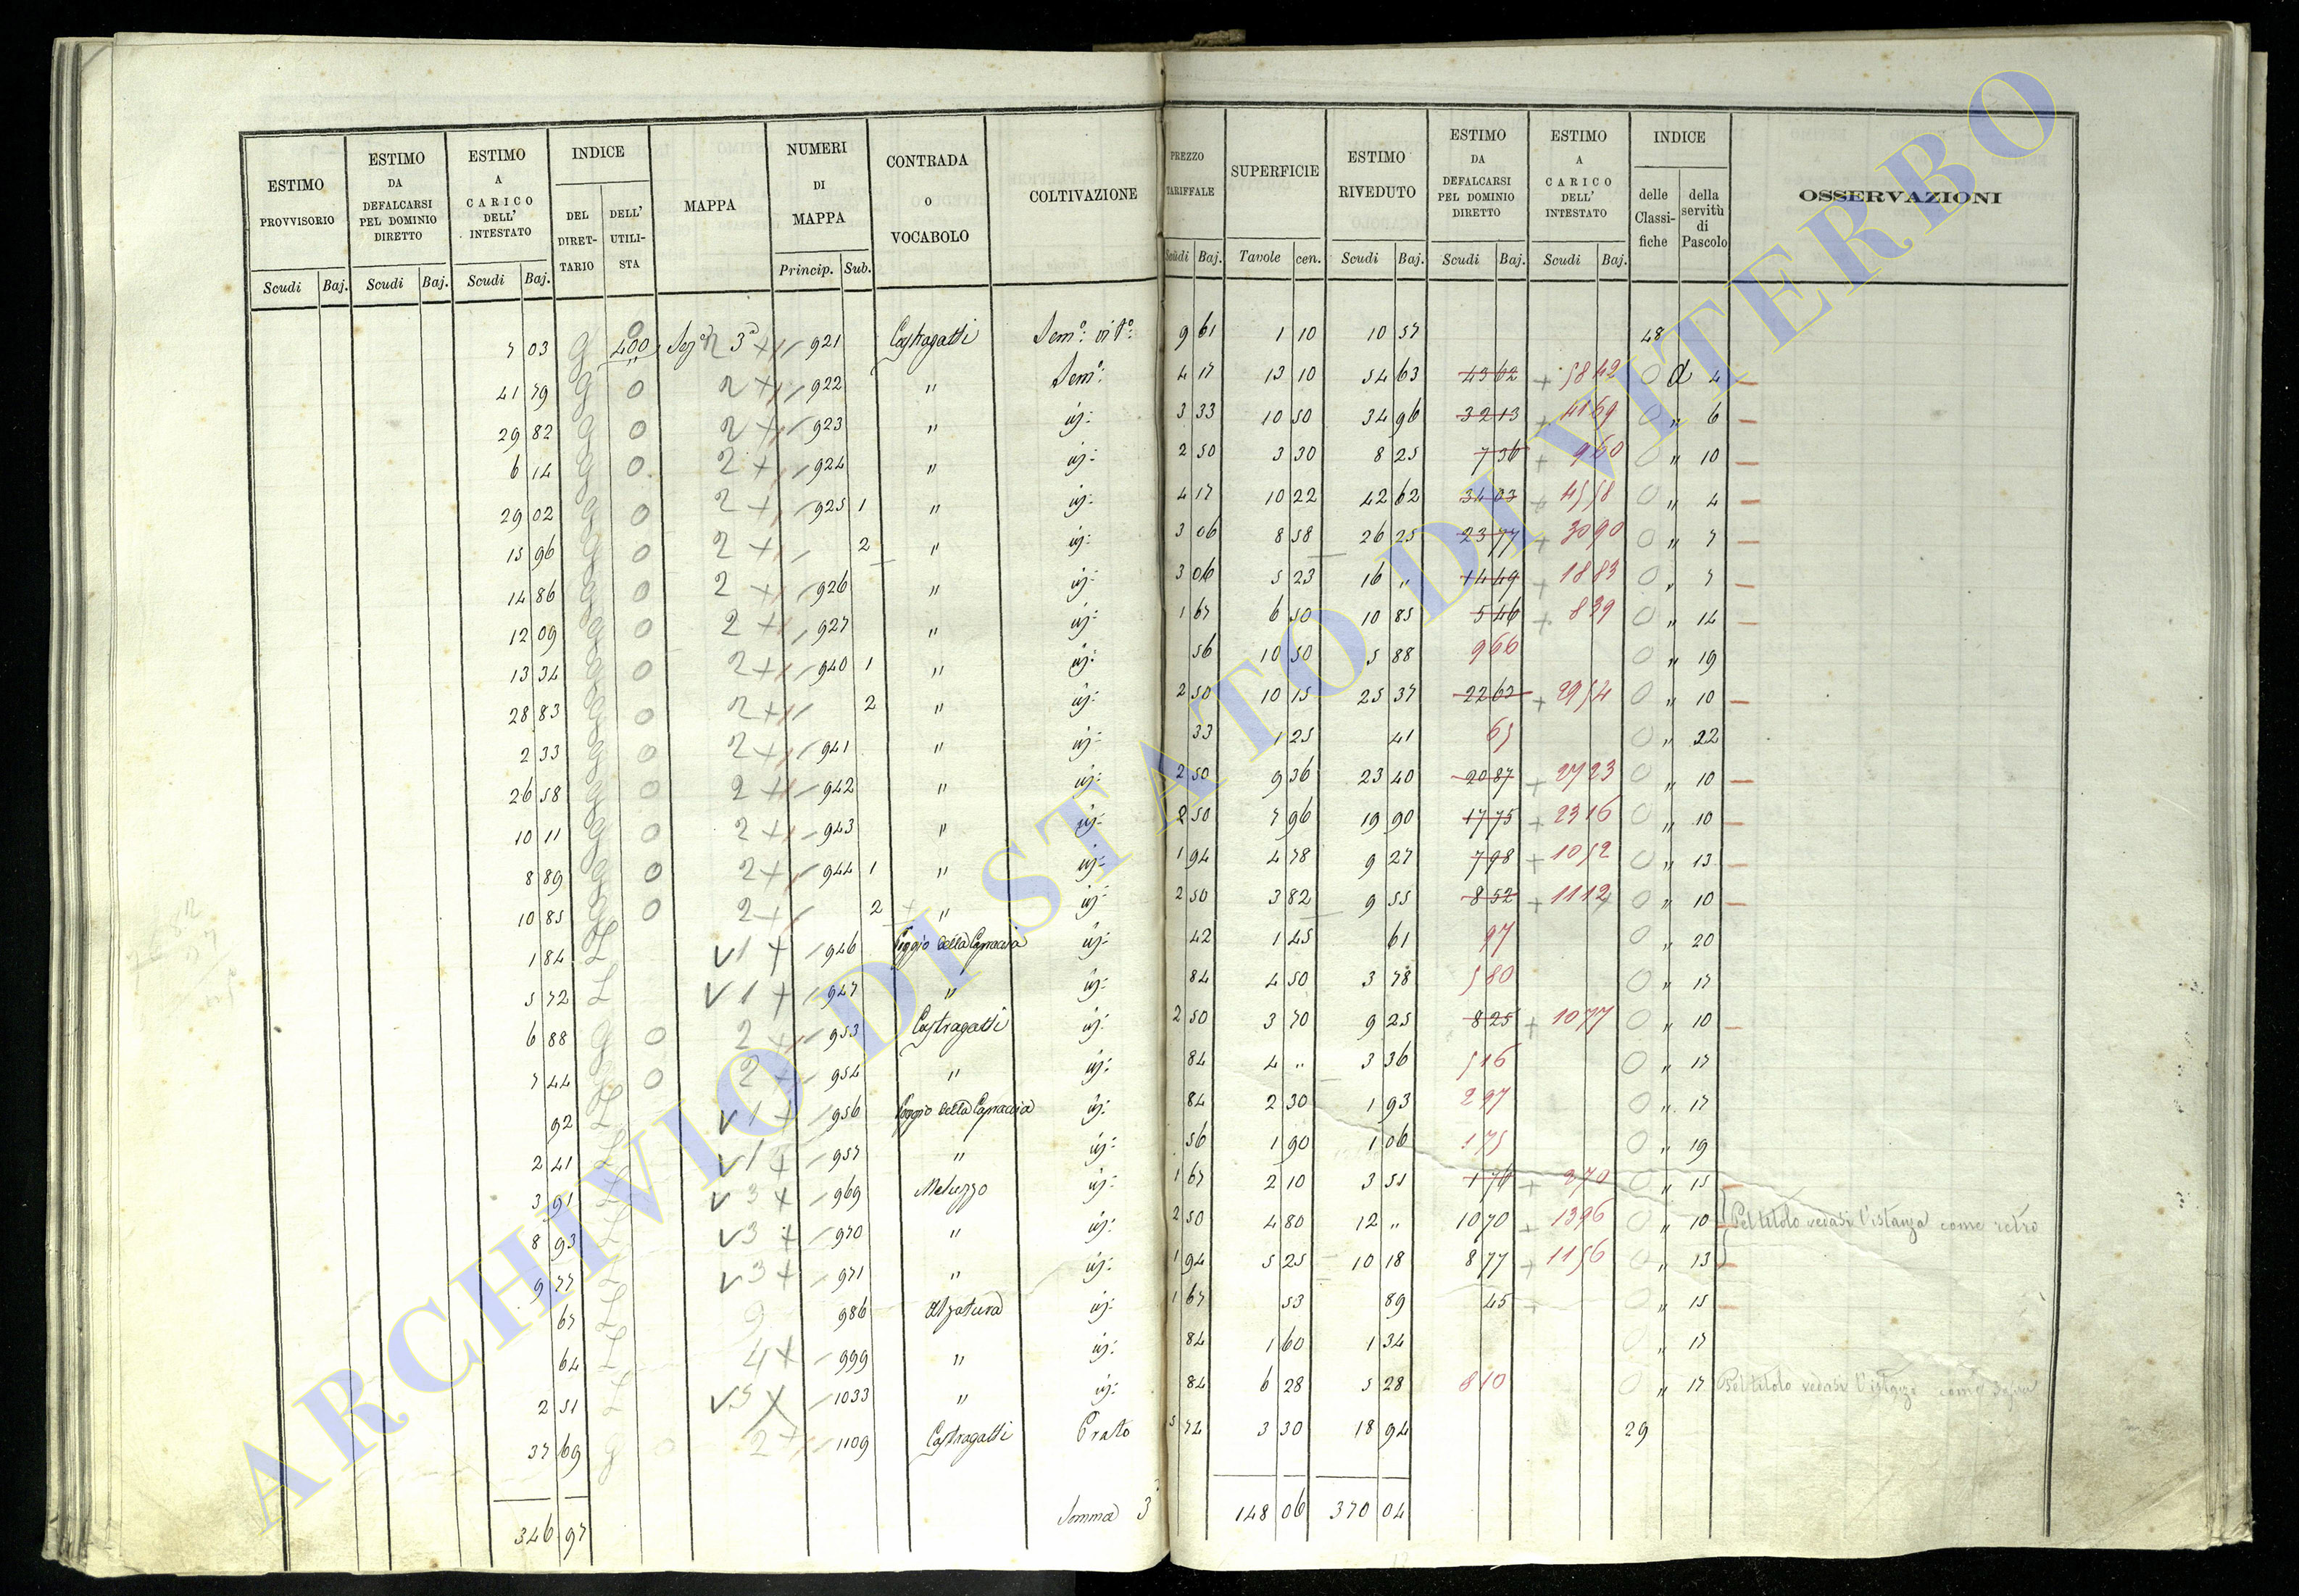 ESTIMO PROVVISORIO | ESTIMO DA DEFALCARSI PEL DOMINIO DIRETTO | ESTIMO A CARICO DELL' INTESTATO | INDICE DEL DIRETTARIO | DELL' UTILISTA | MAPPA | NUMERI DI MAPPA | CONTRADA O VOCABOLO | COLTIVAZIONE | PREZZO TARIFFALE | SUPERFICIE | ESTIMO RIVEDUTO | ESTIMO DA DEFALCARSI PEL DOMINIO DIRETTO | ESTIMO A CARICO DELL' INTESTATO | INDICE delle Classifiche | della servitù di Pascolo | OSSERVAZIONI
Scudi Baj. Scudi Baj. Scudi Baj. Princip. Sub. Scudi Baj. Tavole cen. Scudi Baj. Scudi Baj. Scudi Baj.
7 03 g 400 2 3ª 921 Castragatti Sem.º vit.º 9 61 1 10 10 57 48
41 79 g 0 2 922 " Sem.º 4 17 13 10 54 63 43 62 + 58 42 0 d 4
29 82 g 0 2 923 " id: 3 33 10 50 34 96 32 13 + 41 69 0 " 6
6 14 g 0 2 924 " id: 2 50 3 30 8 25 7 36 + 9 60 0 " 10
29 02 g 0 2 925 1 " id: 4 17 10 22 42 62 34 03 + 45 58 0 " 4
15 96 g 0 2 2 " id: 3 06 8 58 26 25 23 77 + 30 90 0 " 7
14 86 g 0 2 926 " id: 3 06 5 23 16 " 14 49 + 18 83 0 " 7
12 09 g 0 2 927 " id: 1 67 6 50 10 85 5 46 + 8 39 0 " 14
13 34 g 0 2 940 1 " id: 56 10 50 5 88 9 66 0 " 19
28 83 g 0 2 2 " id: 2 50 10 15 25 37 22 62 + 29 54 0 " 10
2 33 g 0 2 941 " id: 33 1 25 41 65 0 " 22
26 58 g 0 2 942 " id: 2 50 9 36 23 40 20 87 + 27 23 0 " 10
10 11 g 0 2 943 " id: 2 50 7 96 19 90 17 75 + 23 16 0 " 10
8 89 g 0 2 944 1 " id: 1 94 4 78 9 27 7 98 + 10 52 0 " 13
10 85 g 0 2 2 " id: 2 50 3 82 9 55 8 52 + 11 12 0 " 10
1 84 L 1 946 Poggio della Capraccia id: 42 1 45 61 97 0 " 20
5 72 L 1 947 " id: 84 4 50 3 78 5 80 0 " 17
6 88 g 0 2 953 Castragatti id: 2 50 3 70 9 25 8 25 + 10 77 0 " 10
7 44 g 0 2 954 " id: 84 4 " 3 36 5 16 0 " 17
92 L 1 956 Poggio della Capraccia id: 84 2 30 1 93 2 97 0 " 17
2 41 L 1 957 " id: 56 1 90 1 06 1 75 0 " 19
3 91 L 3 969 Meluzzo id: 1 67 2 10 3 51 1 76 + 2 70 0 " 15
8 93 L 3 970 " id: 2 50 4 80 12 " 10 70 + 13 96 0 " 10 Pel titolo vedasi l'istanza come retro
9 77 L 3 971 " id: 1 94 5 25 10 18 8 77 + 11 56 0 " 13
67 L 9 986 Alzatura id: 1 67 53 89 45 + 0 " 15
64 L 4 999 " id: 84 1 60 1 34 0 " 17
2 51 L 5 1033 " id: 84 6 28 5 28 8 10 0 " 17 Pel titolo vedasi l'istanza come
37 69 g 0 2 1109 Castragatti Prato 5 74 3 30 18 94 29
346 97 Somma 3ª 148 06 370 04
ARCHIVIO DI STATO DI VITERBO